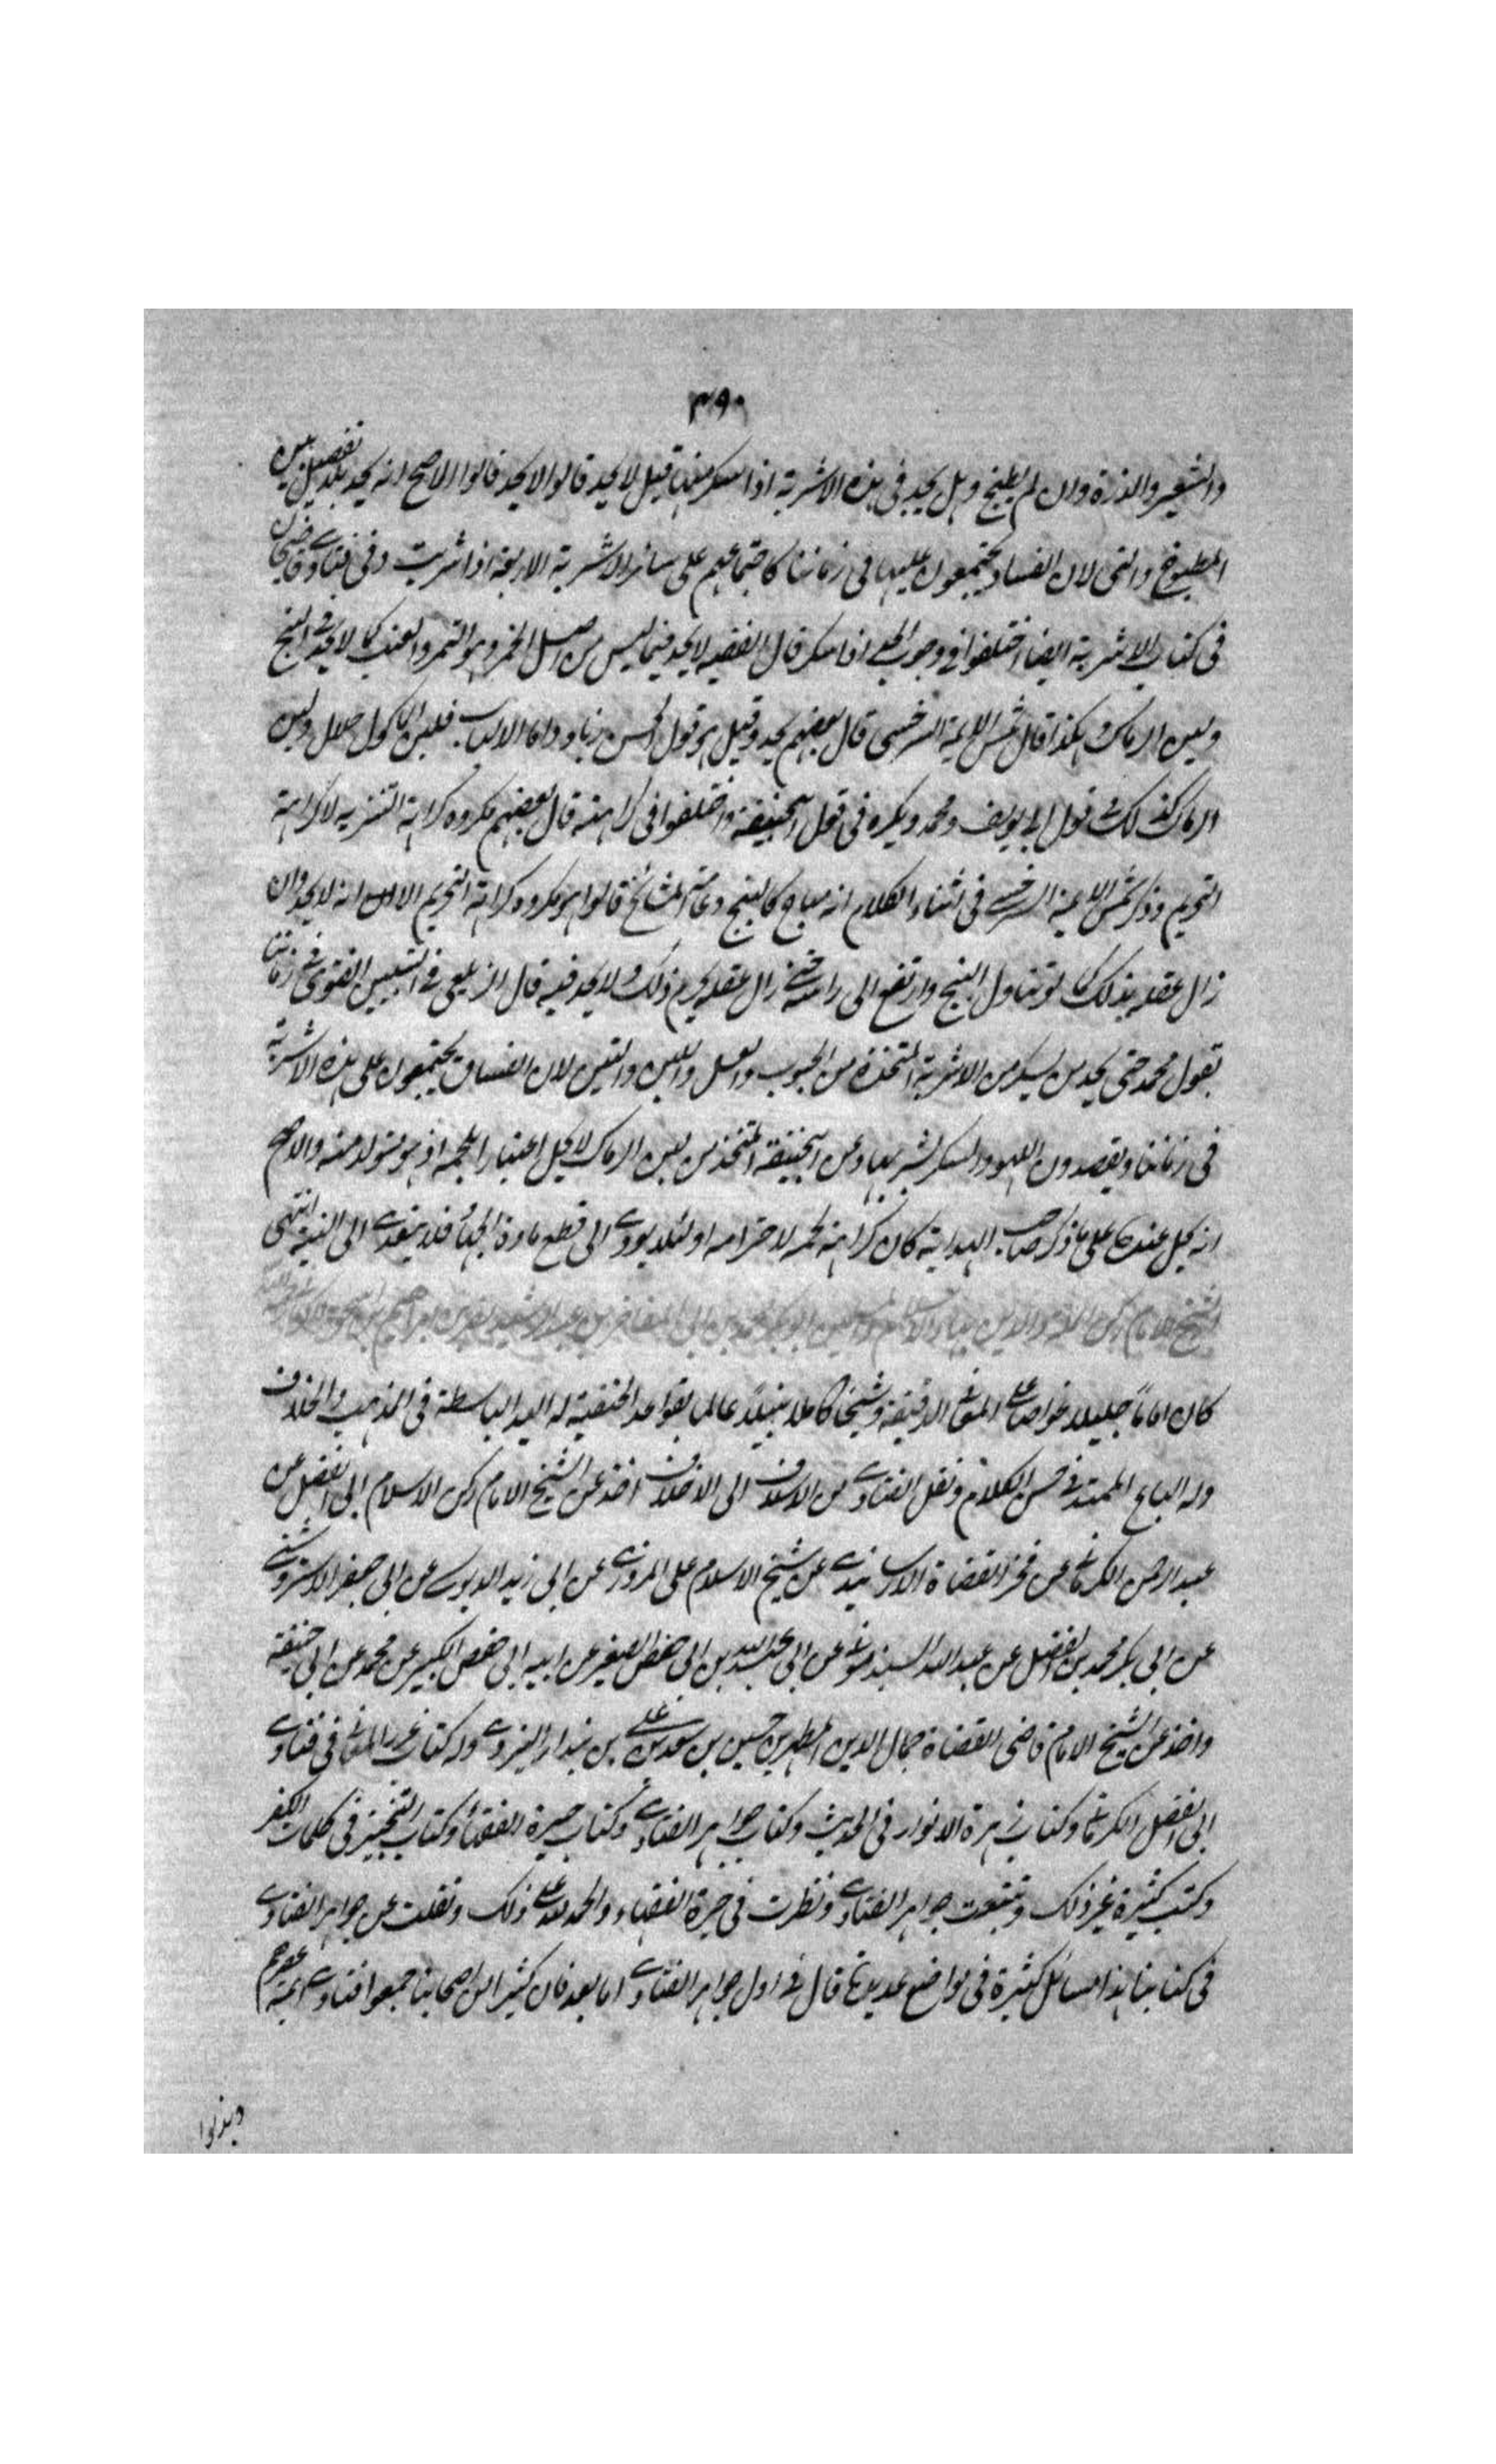 ٣٩٠
والشعير والذرة وان لم يطبخ وهل يحد في هذه الاشربة اذا سكر منها قيل لا يحد قالوا لا يحد قالوا الاصح انه يحد بلا تفصيل بين
المطبوخ والنى لان الفساق يجتمعون عليها في زماننا كاجتماعهم على سائر الاشربة الاربعة اذا شربت وفى فتاوى قاضيخان
فى كتاب الاشربة ايضا اختلفوا فى وجوب الحد اذا سكر قال الفقيه لا يحد فيما ليس من اصل الخمر وهو التمر والعنب كما لا يحد فى البنج
ولبن الرماك وهكذا قال شمس الايمة السرخسى قال بعضهم يحد وقيل هو قول الحسن بن زياد واما الالبان فلبن الماكول حلال ولبن
الرماك كذلك قول ابى يوسف ومحمد ويكره فى قول ابيحنيفة واختلفوا فى كراهته قال بعضهم مكروه كراهة التنزيه لا كراهة
التحريم وذكر شمس الايمة السرخسى فى اثناء الكلام انه مباح كالبنج وعامة المشائخ قالوا هو مكروه كراهة التحريم الا انه لا يحد وان
زال عقله بذلك كما لو تناول البنج وارتفع الى راسه حتى زال عقله يحرم ذلك ولا يحد فيه قال الزيلعى فى التبيين الفتوى فى زماننا
بقول محمد حتى يحد من سكر من الاشربة المتخذة من الحبوب والعسل واللبن والتين لان الفساق يجتمعون على هذه الاشربة
فى زماننا ويقصدون اللهو والسكر بشربها وعن ابيحنيفة المتخذ من لبن الرماك لا يحل اعتبارا بلحمه اذ هو متولد منه والاصح
انه يحل عنده على ما ذكر صاحب الهداية كان كراهة لحمه لاحترامه او لئلا يودى الى قطع مادة الجهاد فلا يتعدى الى لبنه انتهى
الشيخ الامام ركن الملة والدين ابو بكر محمد بن ابى المفاخر بن عبد الرشيد بن نصر بن ابراهيم بن اسحق الكرمانى
كان اماما جليلا غواصا على المعانى الدقيقة وشيخا كاملا نبيلا عالما بقواعد الحنفية له اليد الباسطة فى المذهب والخلاف
وله الباع الممتد فى حسن الكلام ونقل الفتاوى من الاسلاف الى الاخلاف اخذ عن الشيخ الامام ركن الاسلام ابى الفضل بن
عبد الرحمن الكرمانى عن فخر القضاة الارسابندى عن شيخ الاسلام على المروزى عن ابى زيد الدبوسى عن ابى جعفر الاستروشنى
عن ابى بكر محمد بن الفضل عن عبد الله السبذمونى عن ابى عبد الله بن ابى حفص الصغير عن ابيه ابى حفص الكبير عن محمد عن ابى حنيفة
واخذ عن الشيخ الامام قاضى القضاة جمال الدين المطهر بن حسين بن سعد بن على بن بندار اليزدى وله كتاب غرر المعانى فى فتاوى
ابى الفضل الكرمانى وكتاب زهرة الانوار فى الحديث وكتاب جواهر الفتاوى وكتاب حيرة الفقهاء وكتاب التنجيز فى كلمات الكفر
وكتب كثيرة غير ذلك وتتبعت جواهر الفتاوى ونظرت فى حيرة الفقهاء والحمد لله على ذلك ونقلت عن جواهر الفتاوى
فى كتابنا هذا مسائل كثيرة فى مواضع عديدة قال فى اول جواهر الفتاوى اما بعد فان كثيرا من اصحابنا جمعوا فتاوى ائمة عصرهم